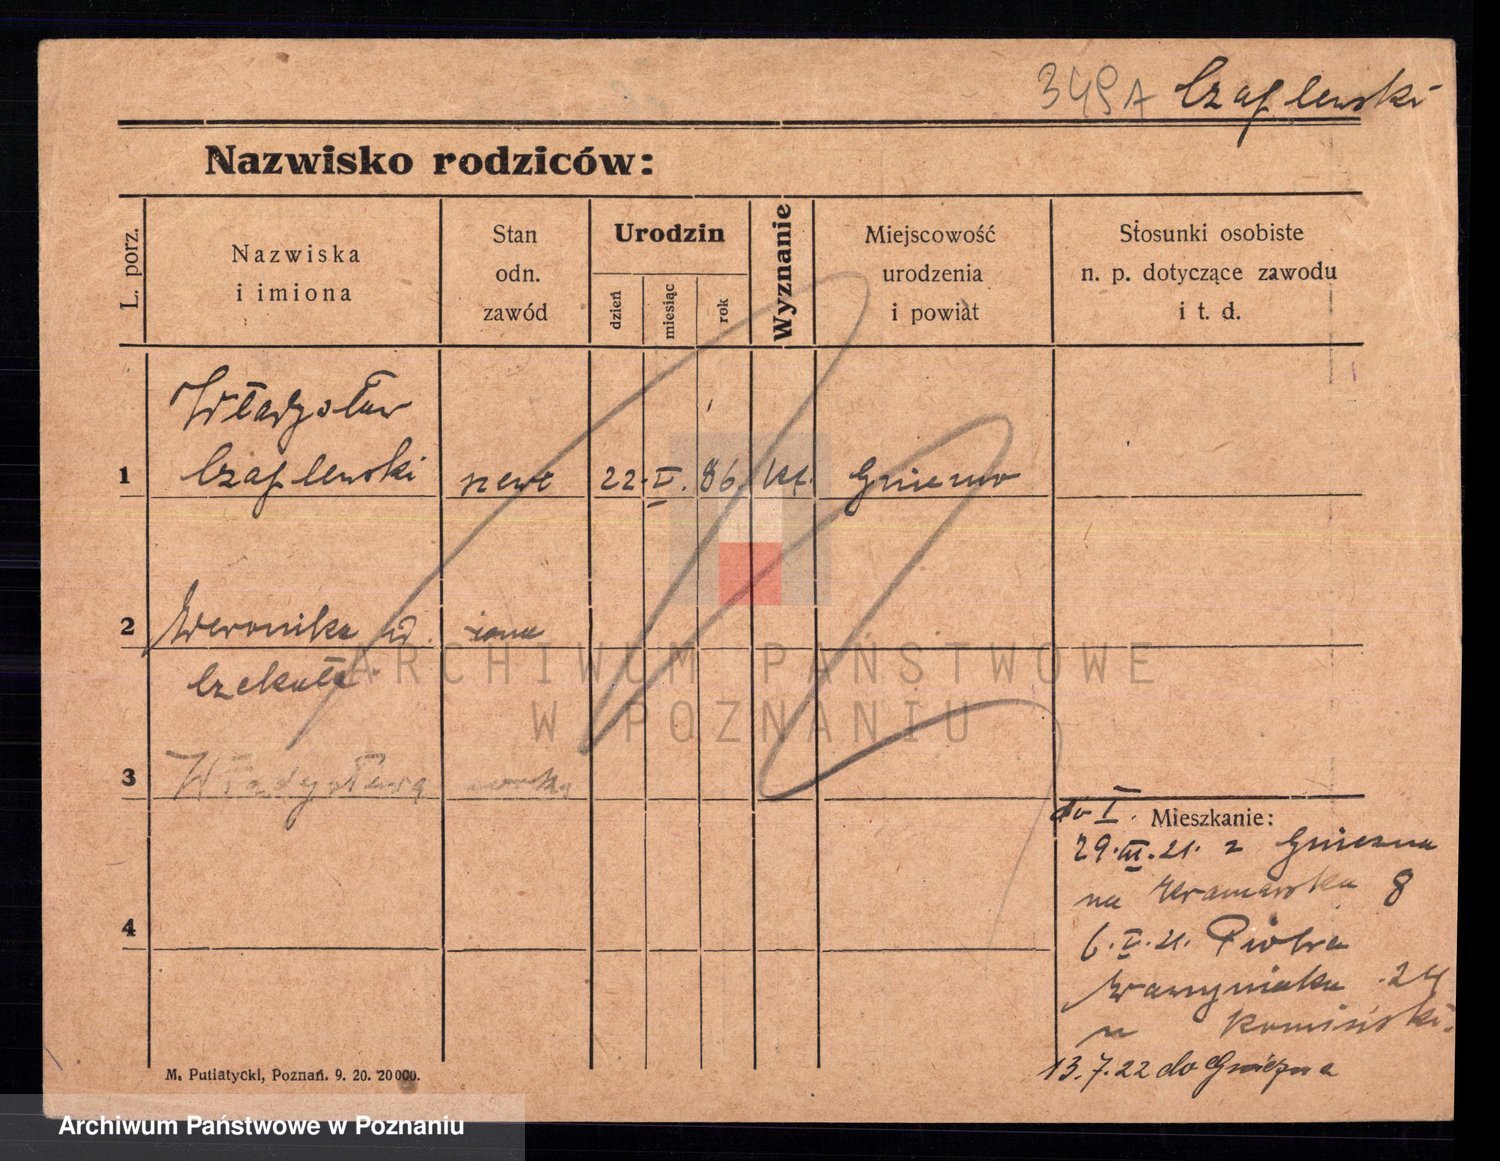 349A Czaplewski
Nazwisko rodziców:
L. porz.
Nazwiska
i imiona
Stan
odn.
zawód
Urodzin
dzień
miesiąc
rok
Wyznanie
Miejscowość
urodzenia
i powiat
Stosunki osobiste
n. p. dotyczące zawodu
i t. d.
Władysław
1 Czaplewski szewc 22. V. 86. kat. Gniezno
2 Weronika żona
3 Władysława córka
4
do I.
Mieszkanie:
29.III.21. z Gniezna
na Kramarska 8
6.V.21. Piotra
Wawrzyniaka 24
u
13.7.22 do Gniezna
M. Putiatycki, Poznań. 9. 20. 20000.
ARCHIWUM PAŃSTWOWE
W POZNANIU
Archiwum Państwowe w Poznaniu